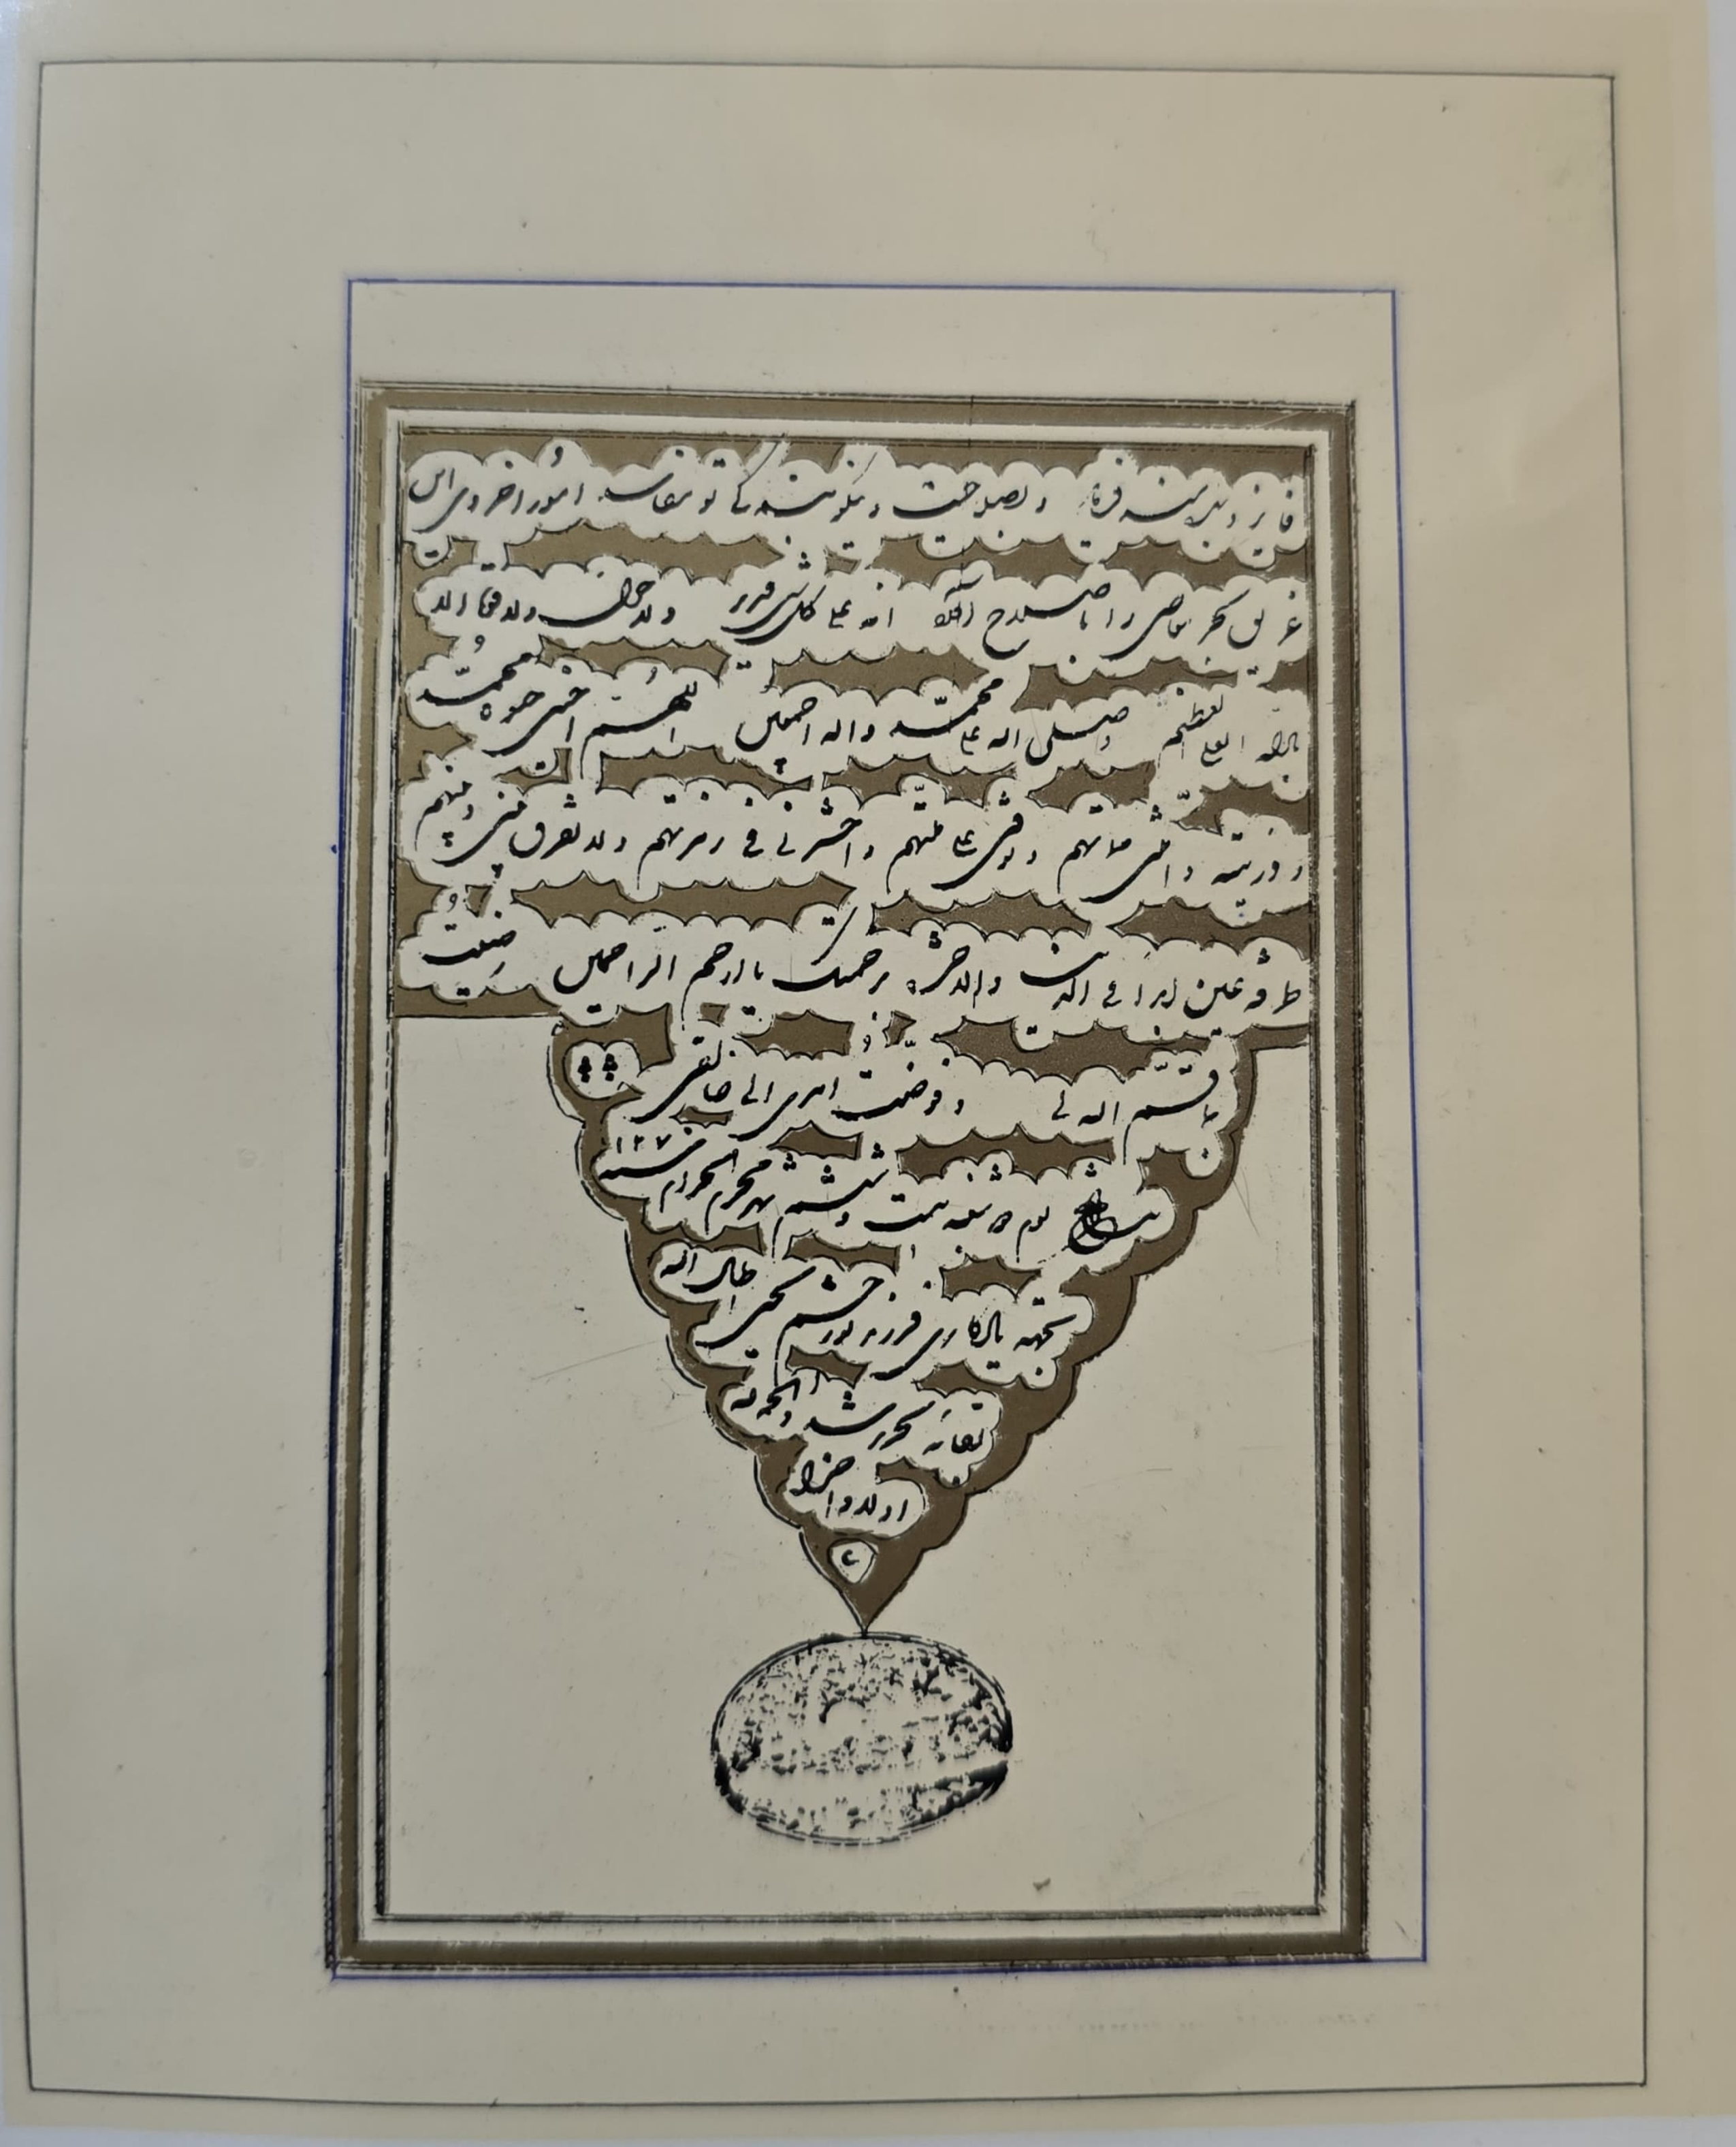 فایز و بصلاحیت و نیکو بندگی تو امور اخروی این
غریق بحر معاصی را باصلاح انه علی کل شئ قدیر ولا حول ولا قوة الا
بالله العلی العظیم وصلی الله علی محمّد واله اجمعین اللهُمّ احینی حیوة محمّد
وذریّته وامتنی مماتهم وتوفنی علی ملّتهم واحشرنی فی زمرتهم ولا تفرق بینی وبینهم
طرفة عین ابدا فی الدنیا والاخرة برحمتک یا ارحم الراحمین رضیتُ
بما قسّم الله لی وفوّضتُ امری الی خالقی
بتاریخ یوم شنبه بیست وششم شهر محرم الحرام سنه ۱۲۷
بجهة یادکاری فرزند نورچشم یحیی اطال الله
بقائه تحریر شد والحمد لله
اولا واخرا